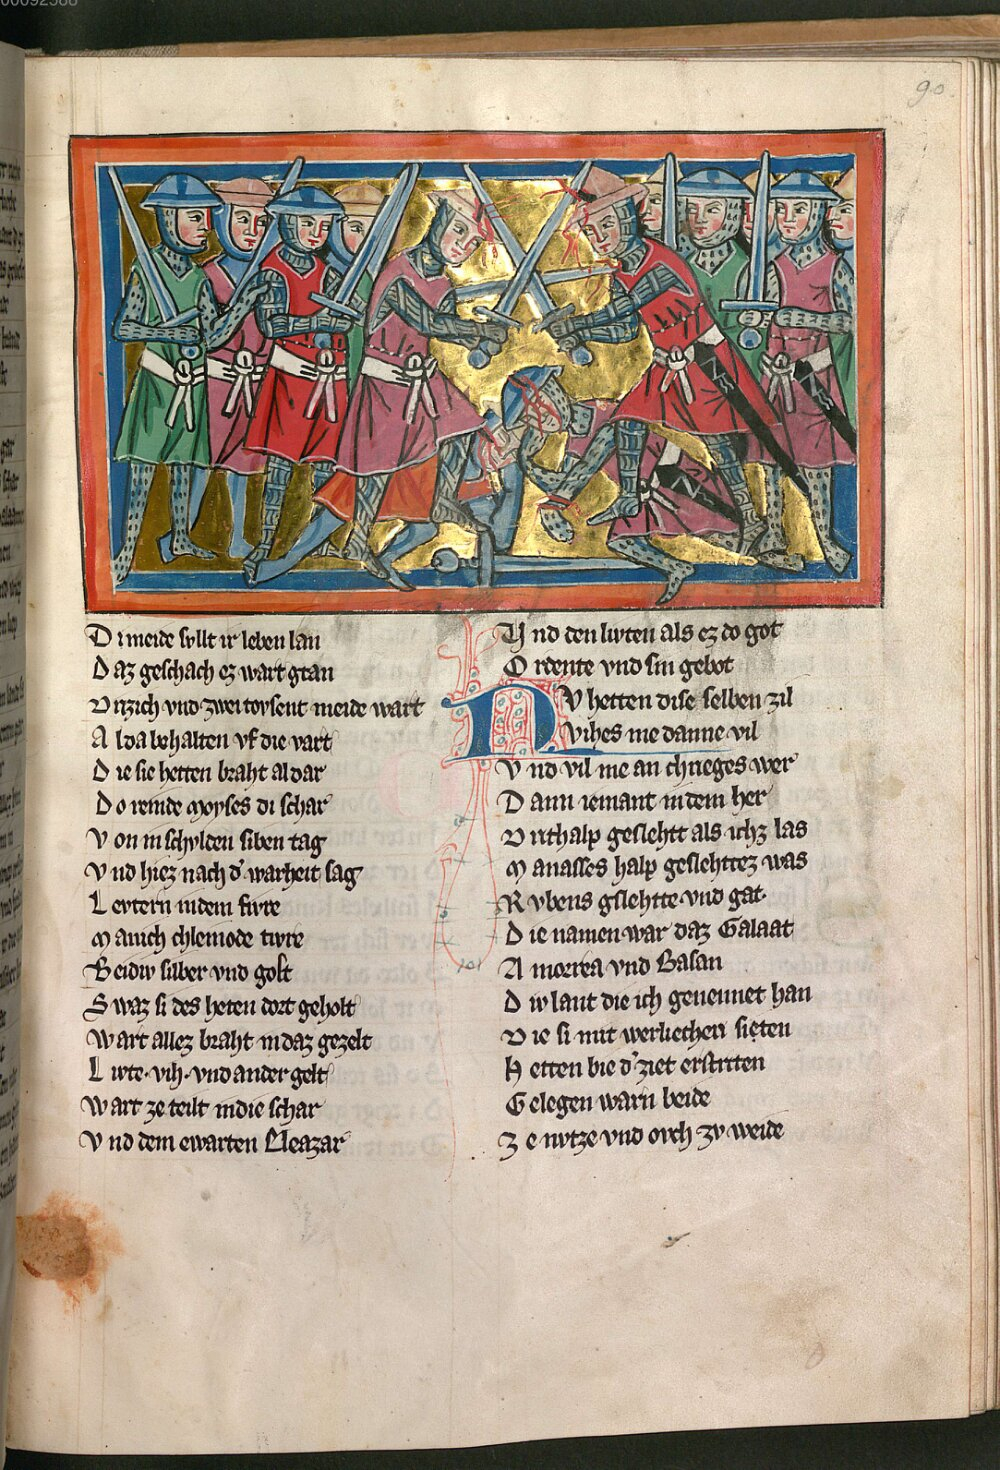 90.
Di meide svllt ir leben lan
Daz geschach ez wart gtan
Virzich vnd zwei tovsent meide wart
Alda behalten vf die vart
Die sie hetten braht aldar
Do reinde moyses di schar
Von in schvlden siben tag
Vnd hiez nach d' warheit sag
Levtern in dem fivre
Manich chleinode tivre
Beidiv silber vnd golt
Swaz si des heten dort geholt
Wart allez braht in daz gezelt
Livte · vih · vnd ander gelt
Wart ze teilt in die schar
Vnd dem ewarten Eleazar
Vnd den livten als ez do got
Ordente vnd sin gebot
Nv hetten dise selben zil
Vihes me danne vil
Vnd vil me an chrieges wer
Dann iemant in dem her
Virthalp geslehtt als ichz las
Manasses halp geslehttez was
Rvbens gslehtte vnd gat·
Die namen war daz Galaat
Amorrea vnd Basan
Div lant die ich genennet han
Die si mit werlichen siten
Hetten bie d' ziet erstriten
Gelegen warn beide
Ze nvtze vnd ovch zv weide